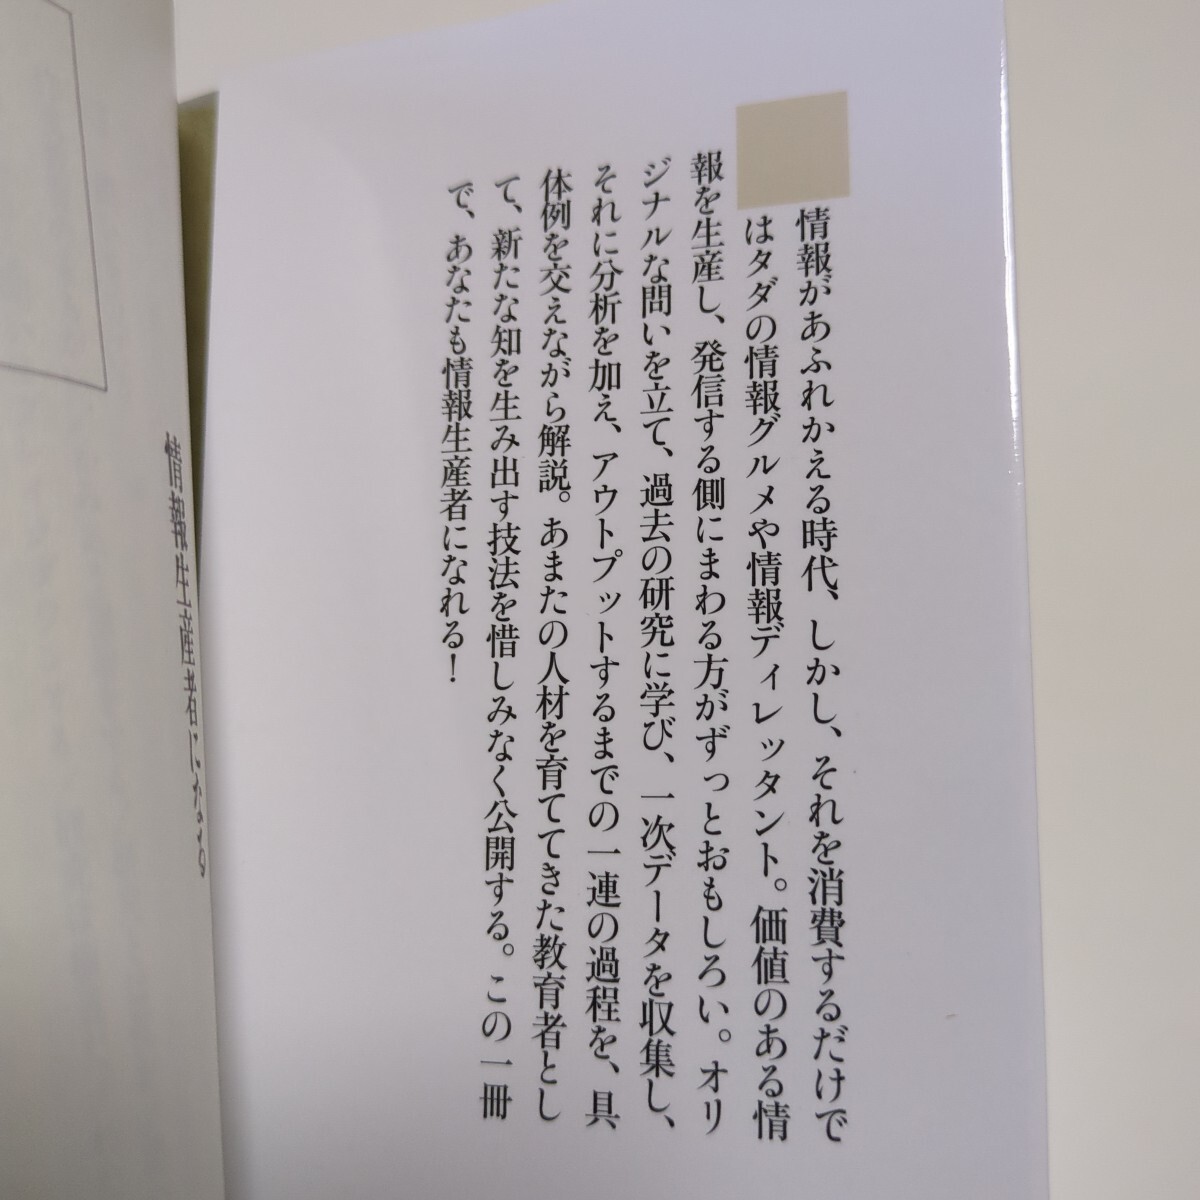 情報があふれかえる時代、しかし、それを消費するだけで
はタダの情報グルメや情報ディレッタント。価値のある情
報を生産し、発信する側にまわる方がずっとおもしろい。オリ
ジナルな問いを立て、過去の研究に学び、一次データを収集し、
それに分析を加え、アウトプットするまでの一連の過程を、具
体例を交えながら解説。あまたの人材を育ててきた教育者とし
て、新たな知を生み出す技法を惜しみなく公開する。この一冊
で、あなたも情報生産者になれる！
情報生産者になる